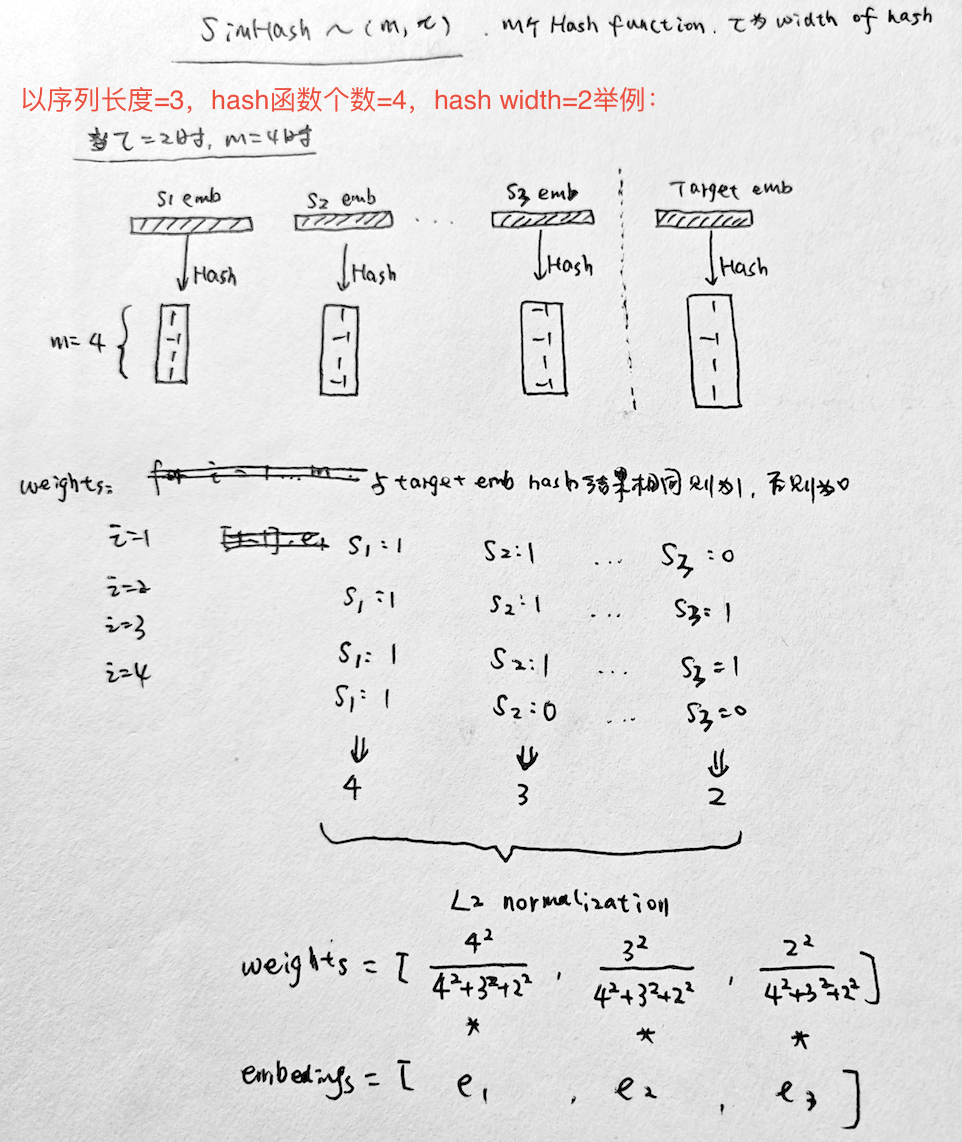 SimHash ~ (m, τ). m个 Hash function. τ为 width of hash
以序列长度=3，hash函数个数=4，hash width=2举例：
当τ=2时, m=4时
S1 emb S2 emb ... S3 emb Target emb
Hash Hash Hash Hash
m=4
1 1 -1 1
-1 -1 -1 -1
1 1 1 1
1 -1 -1 1
weights: for i = 1 ... m 与 target emb hash结果相同则为1, 否则为0
i=1 S1:1 S2:1 ... S3:0
i=2 S1:1 S2:1 ... S3=1
i=3 S1=1 S2:1 ... S3=1
i=4 S1=1 S2:0 ... S3=0
⇓ ⇓ ⇓
4 3 2
L2 normalization
weights = [ 4²/(4²+3²+2²) , 3²/(4²+3²+2²) , 2²/(4²+3²+2²) ]
* * *
embedings = [ e1 , e2 , e3 ]